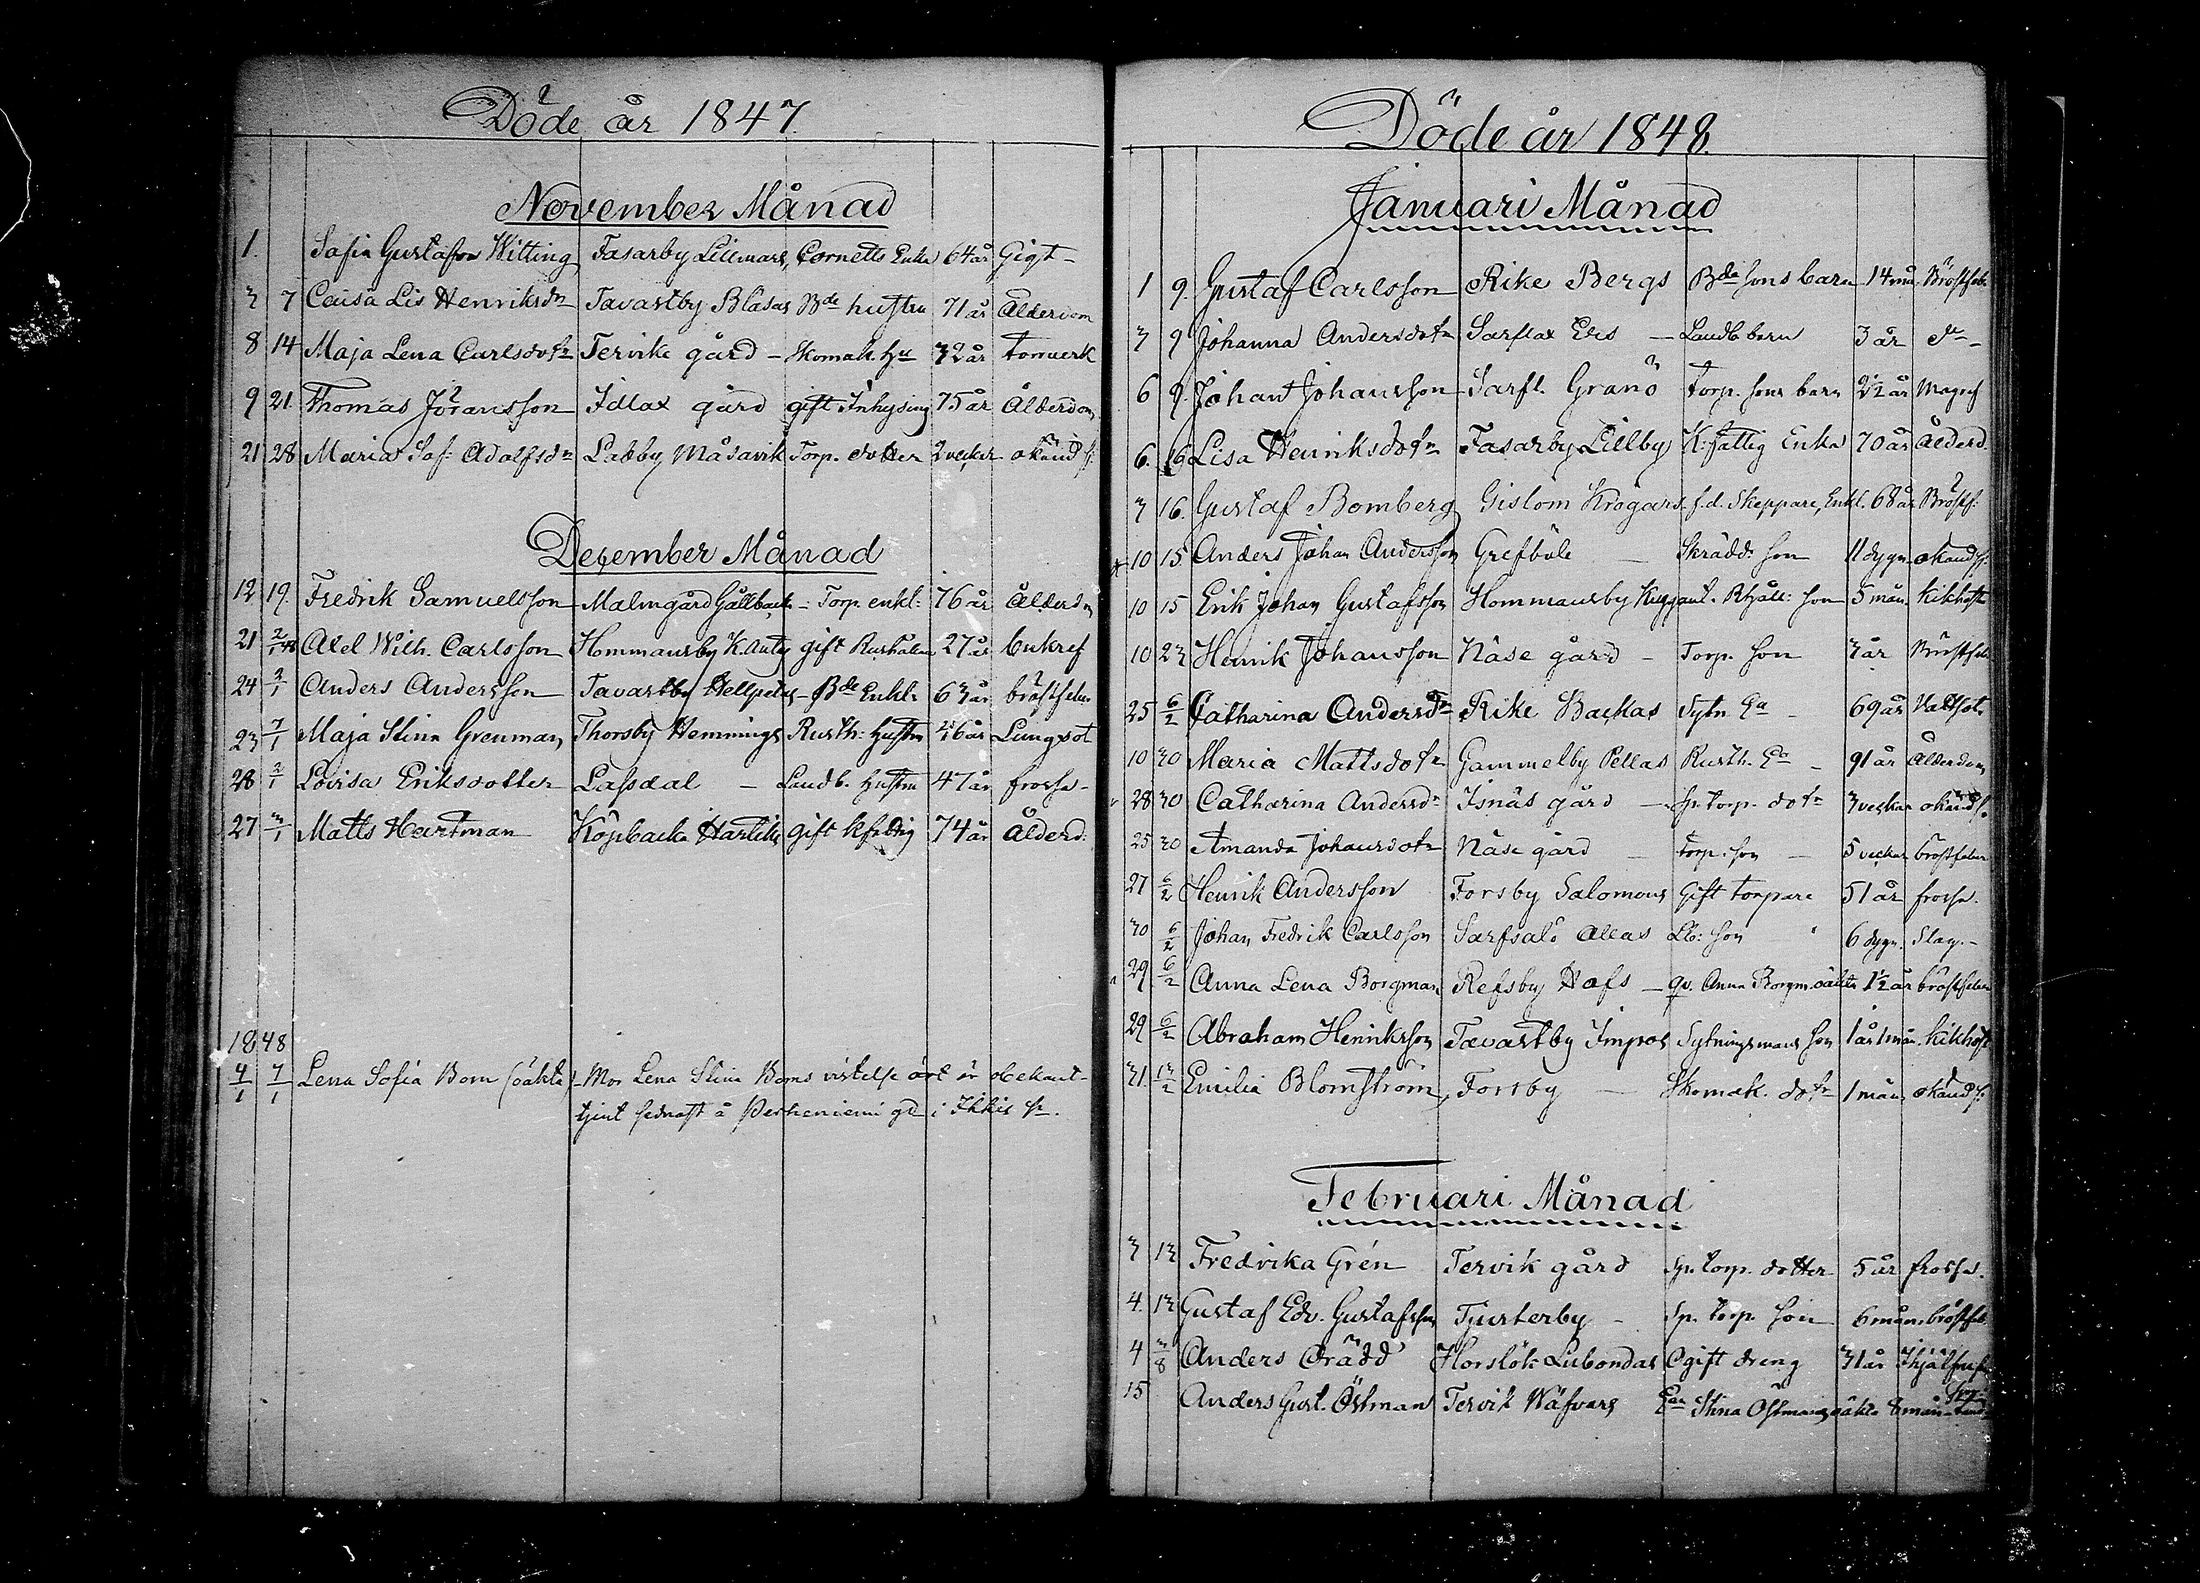 Döde år 1847.
November Månad
1. Sofia Gustafson Witting Fasarby Lillmars, Cornetts Enka 64 år Gigt
3 7 Caisa Lis Henriksdr Tavastby Blåsas Bde hustru 71 år Ålderdom
8 14 Maja Lena Carlsdotr Tervike gård - Skomak. Hu 32 år torrverk
9 21. Thomas Johansson Idlax gård gift Inhysing 75 år Ålderdom
21 28 Maria Sof: Adolfsdr Labby Måsavik Torp. dotter 2 veckor okänd s:
December Månad
12 19. Fredrik Samuelsson Malmgård Gällback - Torp. enkl: 76 år Ålderdom
21 2/1 48 Axel Wilh. Carlsson Hommansby K. gift Rusthållare 27 år bukref
24 2/1 Anders Andersson Tavastby - Bde Enkl: 63 år bröstfeber
23 7/1 Maja Stina Grenman Thorsby Hemmings Rusth: Hustru 46 år Lungsot
28 2/1 Lovisa Eriksdotter Lassdal - Landb. Hustru 47 år frossa -
27 3/1 Matts Hartman Köpbacka Härtiks gift kfattig 74 år Ålderd.
1848
4/1 7/1 Lena Sofia Bom (oäkta) - Mor Lena Stina Boms vistelse ort är obekant -
tjent sednast å Perheniemi gd i Ithis sn.
Döde år 1848.
Januari Månad
1 9. Gustaf Carlsson Rike Bergs Bde sons barn 14 mån. Bröstfeb.
3 9 Johanna Andersdotr Sarflax Eks - Landb. barn 3 år do -
6 9. Johan Johansson Sarfl. Granö Torp. sons barn 2 1/2 år Magref
6. 16 Lisa Henriksdotr Fasarby Lillby K: fattig Enka 70 år Ålderd.
7 16. Gustaf Bomberg Gislom Krogars. f.d. Skeppare, Enkl. 68 år Bröstf:
10 15. Anders Johan Andersson Grefböle - Skrädd. son 11 dygn okänd s:
10 15 Erik Johan Gustafsson Hommansby Kuggant. Rhåll: son 5 mån. kikhosta
10 23 Henrik Johansson Näse gård - Torp. son 3 år Bröstfeb.
25 6/2 Catharina Andersdr Rike Backas Sytn Ea - 69 år Vattsot.
10 30 Maria Mattsdotr Gammelby Pellas Rusth. Ea - 91 år Ålderdom
28 30 Catharina Andersdr Isnäs gård - Sp. torp. dotr 3 veckor okänd s.
25 30 Amanda Johansdotr Näse gård - torp. son - 5 veckor bröstfeber
27 6/2 Henrik Andersson Forsby Salomons Gift torpare 51 år frossa.
30 6/2 Johan Fredrik Carlsson Sarfsalö Allas Lb: son 6 dygn. Slag. -
29 6/2 Anna Lena Borgman Refsby Hofs - qv. Anna Borgm. oäkta 1 1/2 år bröstfeber
29 6/2 Abraham Henriksson Tavastby Impos Sytningsmans son 1 år 1 mån. kikhost
31. 13/2 Emilia Blomström Forsby - Skomak. dotr 1 mån okänd s:
Februari Månad
3 13 Fredrika Grén Tervik gård Sp. torp. dotter 5 år frossa.
4. 13 Gustaf Edv. Gustafsson Tjusterby - Sp. torp. son 6 mån. bröstfeb.
4 Anders Brädd Horslök Lubondas Ogift dreng 31 år Ihjälfrusen
15 Anders Gust. Östman Tervik Wäfvars Ean Stina Östmans oäkta 8 mån